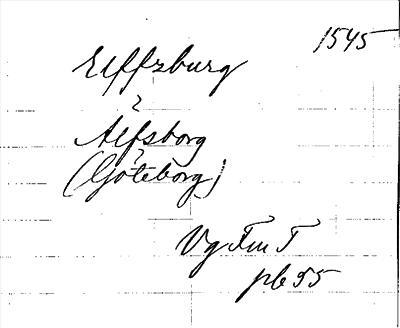 1545
Elffzburg
?
Aelfsborg
?
(Göteborg)
Vg Fm T
pb 55